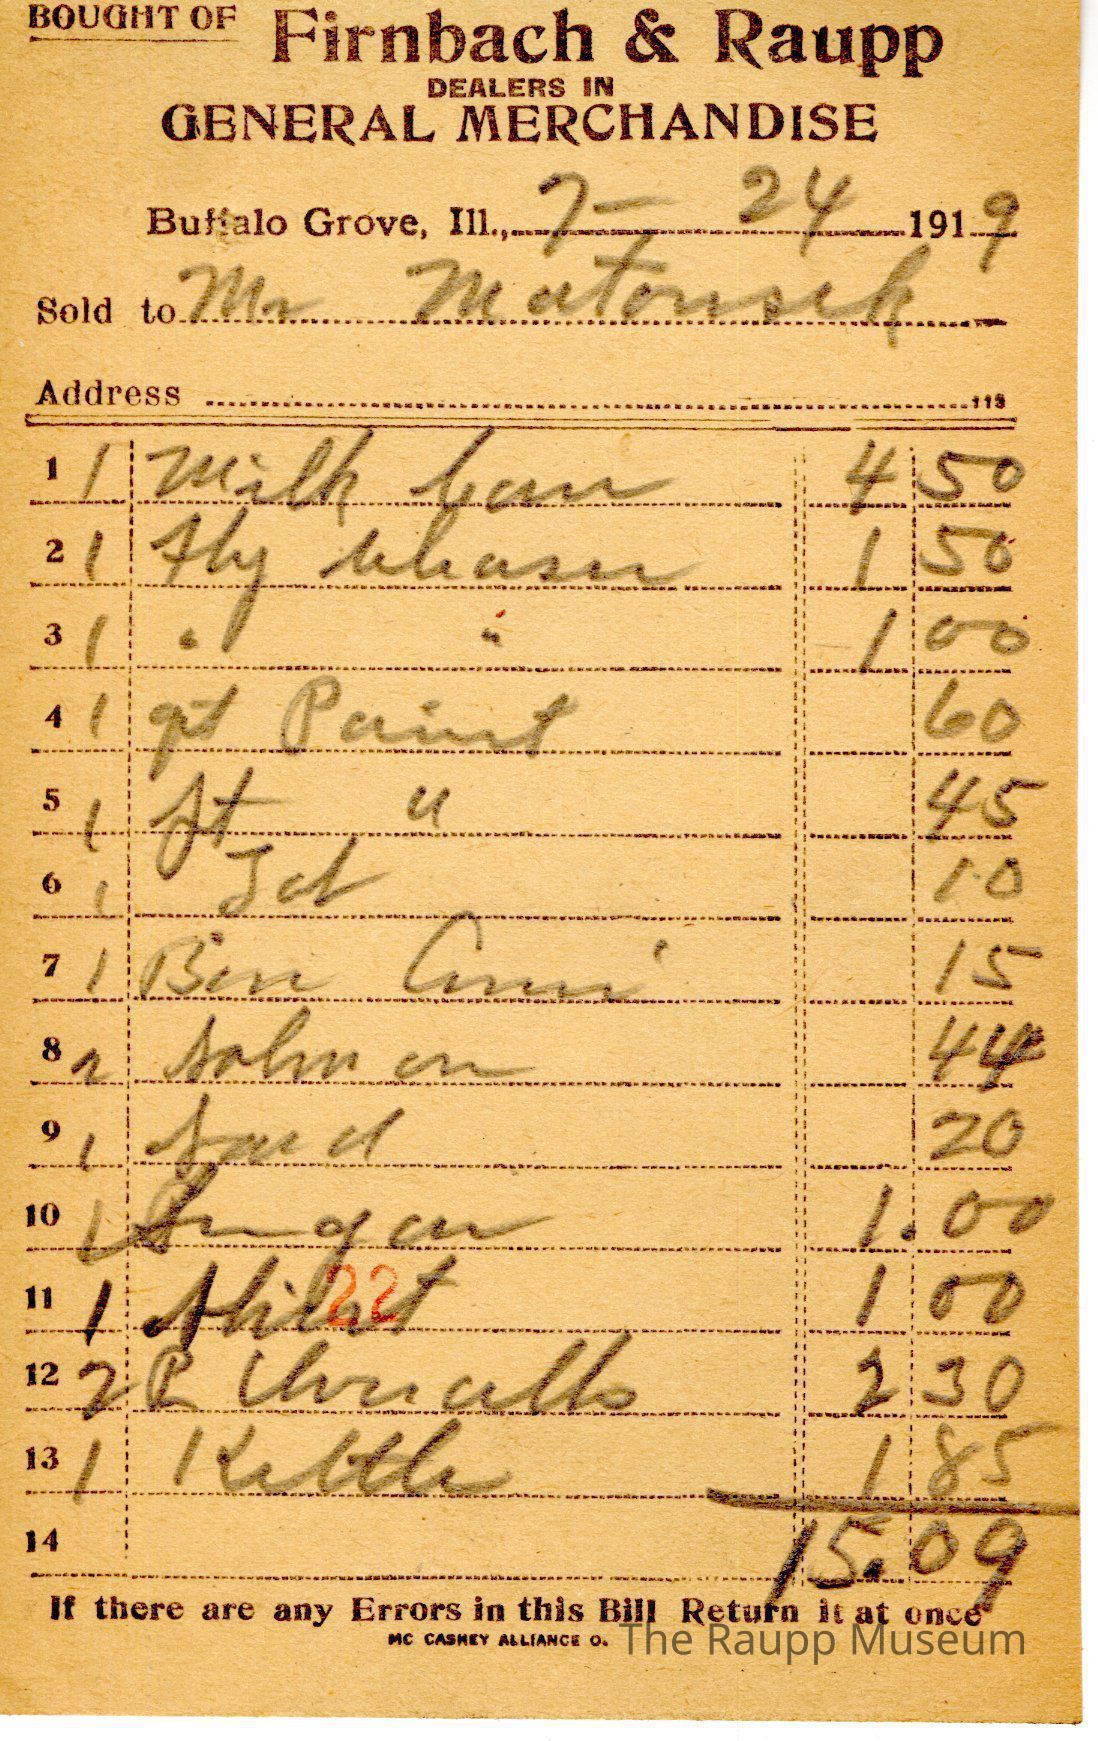 BOUGHT OF Firnbach & Raupp
DEALERS IN
GENERAL MERCHANDISE
Buffalo Grove, Ill., 7- 24 1919
Sold to Mr Matousek
Address 113
1 1 Milk Can 4 50
2 1 Fly chaser 1 50
3 1 " " 1 00
4 1 qt Paint 60
5 1 pt " 45
6 1 10
7 1 15
8 2 Salmon 44
9 1 20
10 1 Sugar 1.00
11 1 Shirt 22 1 00
12 2 P Overalls 2 30
13 1 Kettle 1 85
14 15.09
If there are any Errors in this Bill Return it at once
MC CASKEY ALLIANCE O.
The Raupp Museum